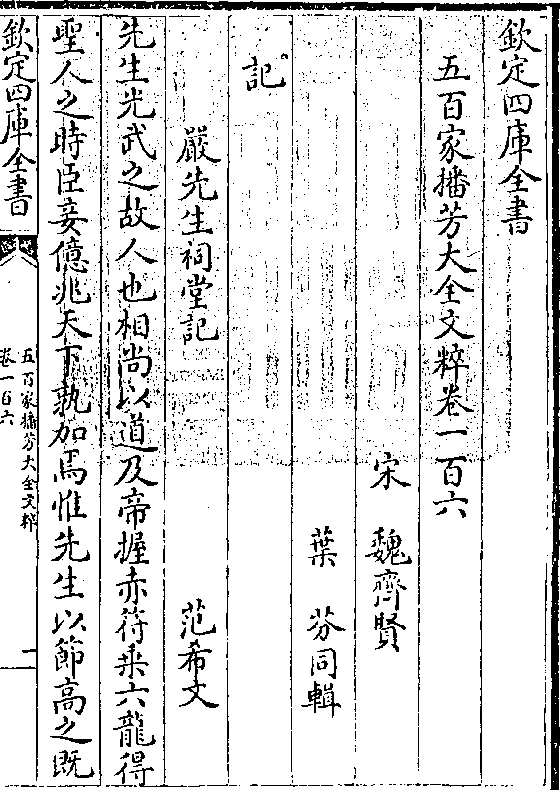 欽定四庫全書
五百家播芳大全文粹卷一百六
宋　魏齊賢
葉　芬同輯
記
嚴先生祠堂記　范希文
先生光武之故人也相尚以道及帝握赤符乗六龍得
聖人之時臣妾億兆天下孰加焉惟先生以節高之既
欽定四庫全書
五百家播芳大全文粹
卷一百六
一